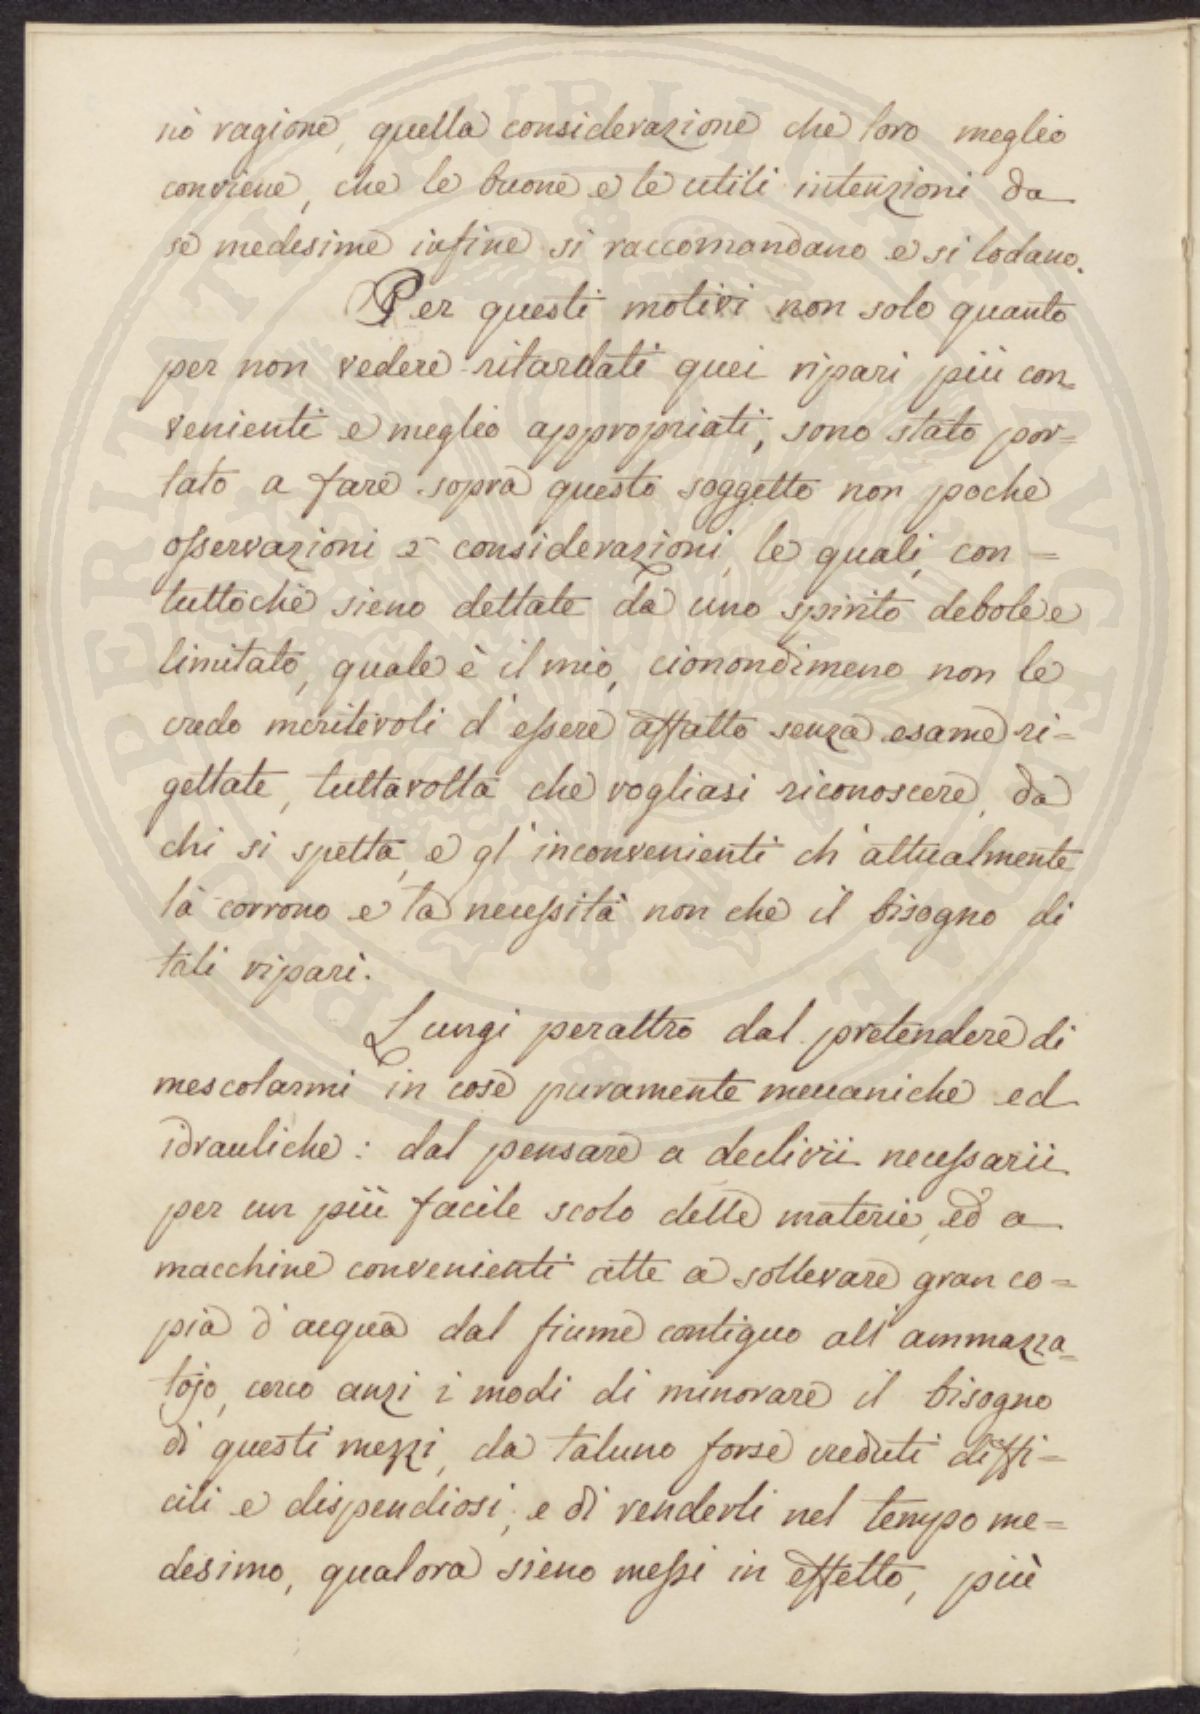 nò ragione, quella considerazione che loro meglio
conviene, che le buone e le utili intenzioni da
se medesime infine si raccomandano e si lodano.
Per questi motivi non solo quanto
per non vedere ritardati quei ripari più con
venienti e meglio appropriati, sono stato por=
tato a fare sopra questo soggetto non poche
osservazioni e considerazioni, le quali, con=
tuttochè sieno dettate da uno spirito debole e
limitato, quale è il mio, cionondimeno non le
credo meritevoli d'essere affatto senza esame ri=
gettate, tuttavolta che vogliasi riconoscere, da
chi si spetta, e gl'inconvenienti ch'attualmente
là corrono e la necessità non che il bisogno di
tali ripari.
Lungi peraltro dal pretendere di
mescolarmi in cose puramente meccaniche ed
idrauliche: dal pensare a declivii necessarii
per un più facile scolo delle materie, ed a
macchine convenienti atte a sollevare gran co=
pia d'acqua dal fiume contiguo all'ammazza=
tojo, cerco anzi i modi di minorare il bisogno
di questi mezzi, da taluno forse creduti diffi=
cili e dispendiosi, e di renderli nel tempo me=
desimo, qualora sieno messi in effetto, più
PERITATI PUBLICAE AUGENDAE